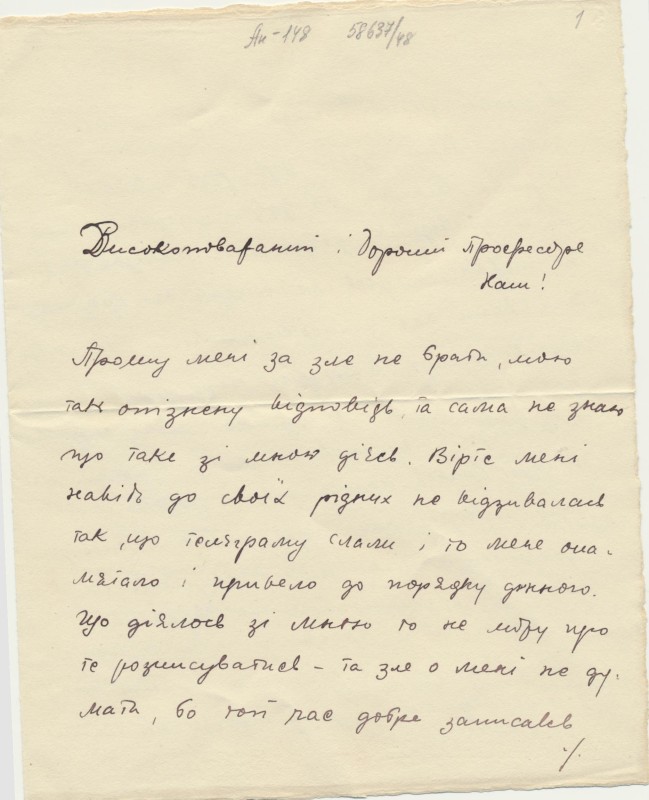 Ан-148 58637/48
1
Високоповажаний і дорогий Професоре
наш!
Прошу мені за зле не брати, мою
так опізнену відповідь, та сама не знаю
що таке зі мною дієсь. Вірте мені
навіть до своїх рідних не відзивалась
так, що телєграму слали і то мене опа-
мятало і привело до порядку
Що діялось зі мною то не можу про
те розписуватись – та зле о мені не ду-
мати, бо той час добре записавсь
./.